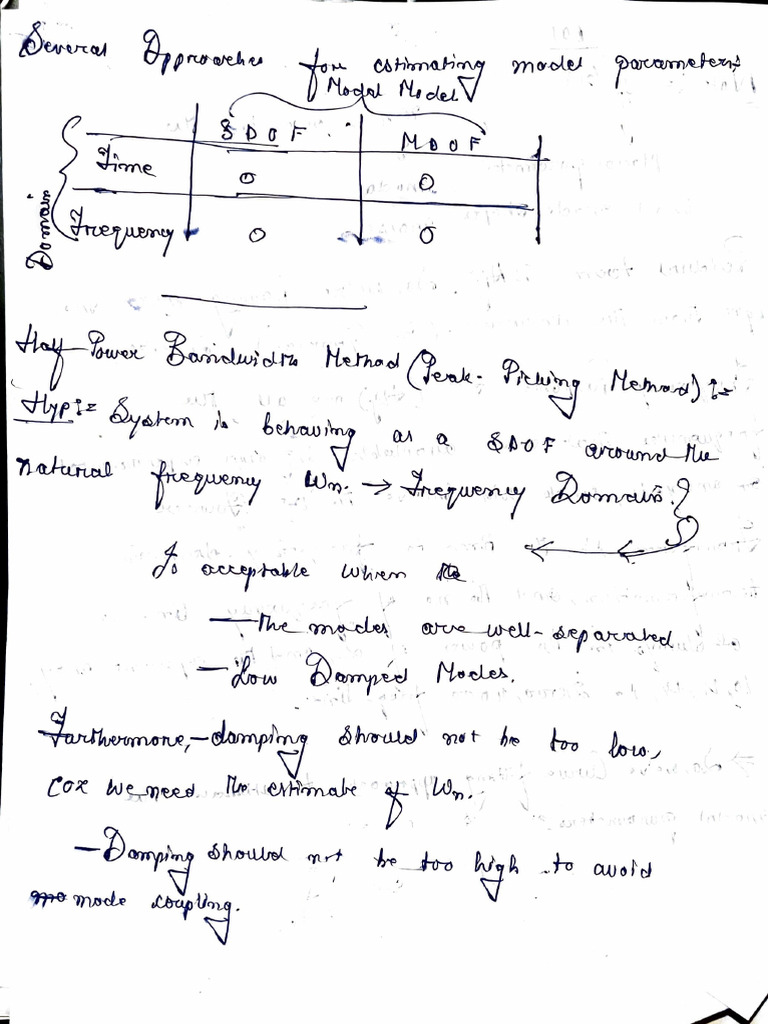 Several Approaches for estimating model parameters
Modal Model
SDOF MDOF
Time O O
Domain
Frequency O O
Half Power Bandwidth Method (Peak-Picking Method) :-
Hyp :- System is behaving as a SDOF around the
natural frequency Wn. → Frequency Domain.
Is acceptable when the
— The modes are well-separated
— Low Damped Modes.
Furthermore, — damping should not be too low,
coz we need the estimate of Wn.
— Damping should not be too high to avoid
mode coupling.